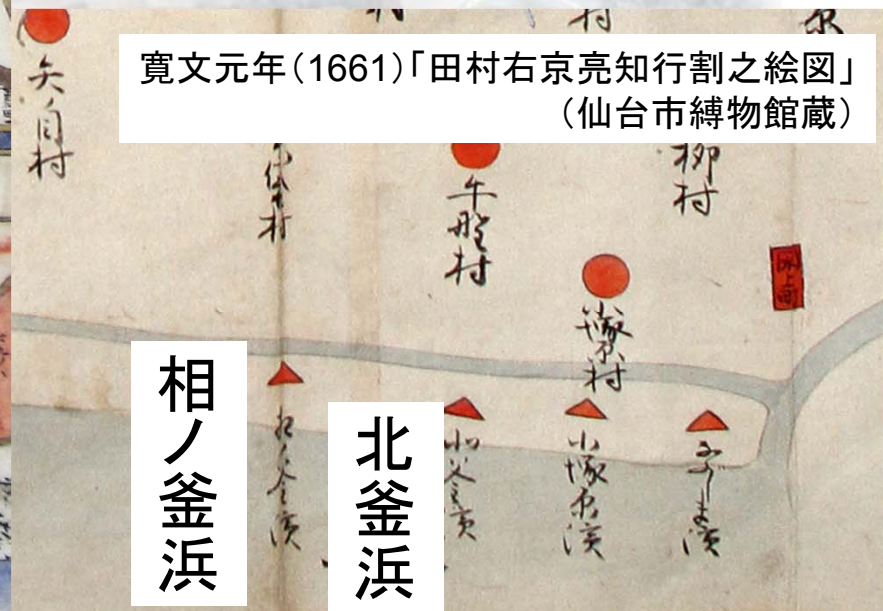 寛文元年(1661)「田村右京亮知行割之絵図」
(仙台市縛物館蔵)
矢ノ目村
村
牛野村
柳村
塚原村
相ノ釜浜
相ノ釜濱
北釜浜
北釜濱
小塚原濱
濱